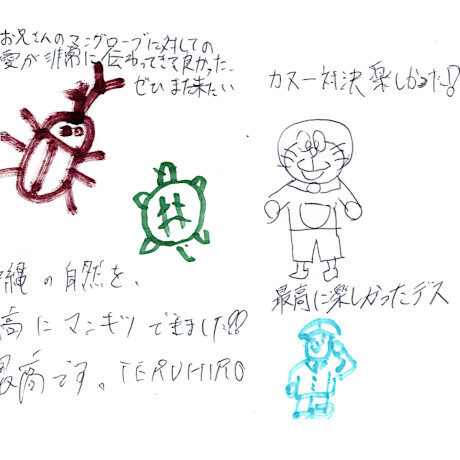 お兄さんのマングローブに対しての
愛が非常に伝わってきて良かった、
ぜひまた来たい
カヌー対決楽しかった!?
縄の自然を、
高にマンキツできました!!
最高です。TERUHIRO
最高に楽しかったデス